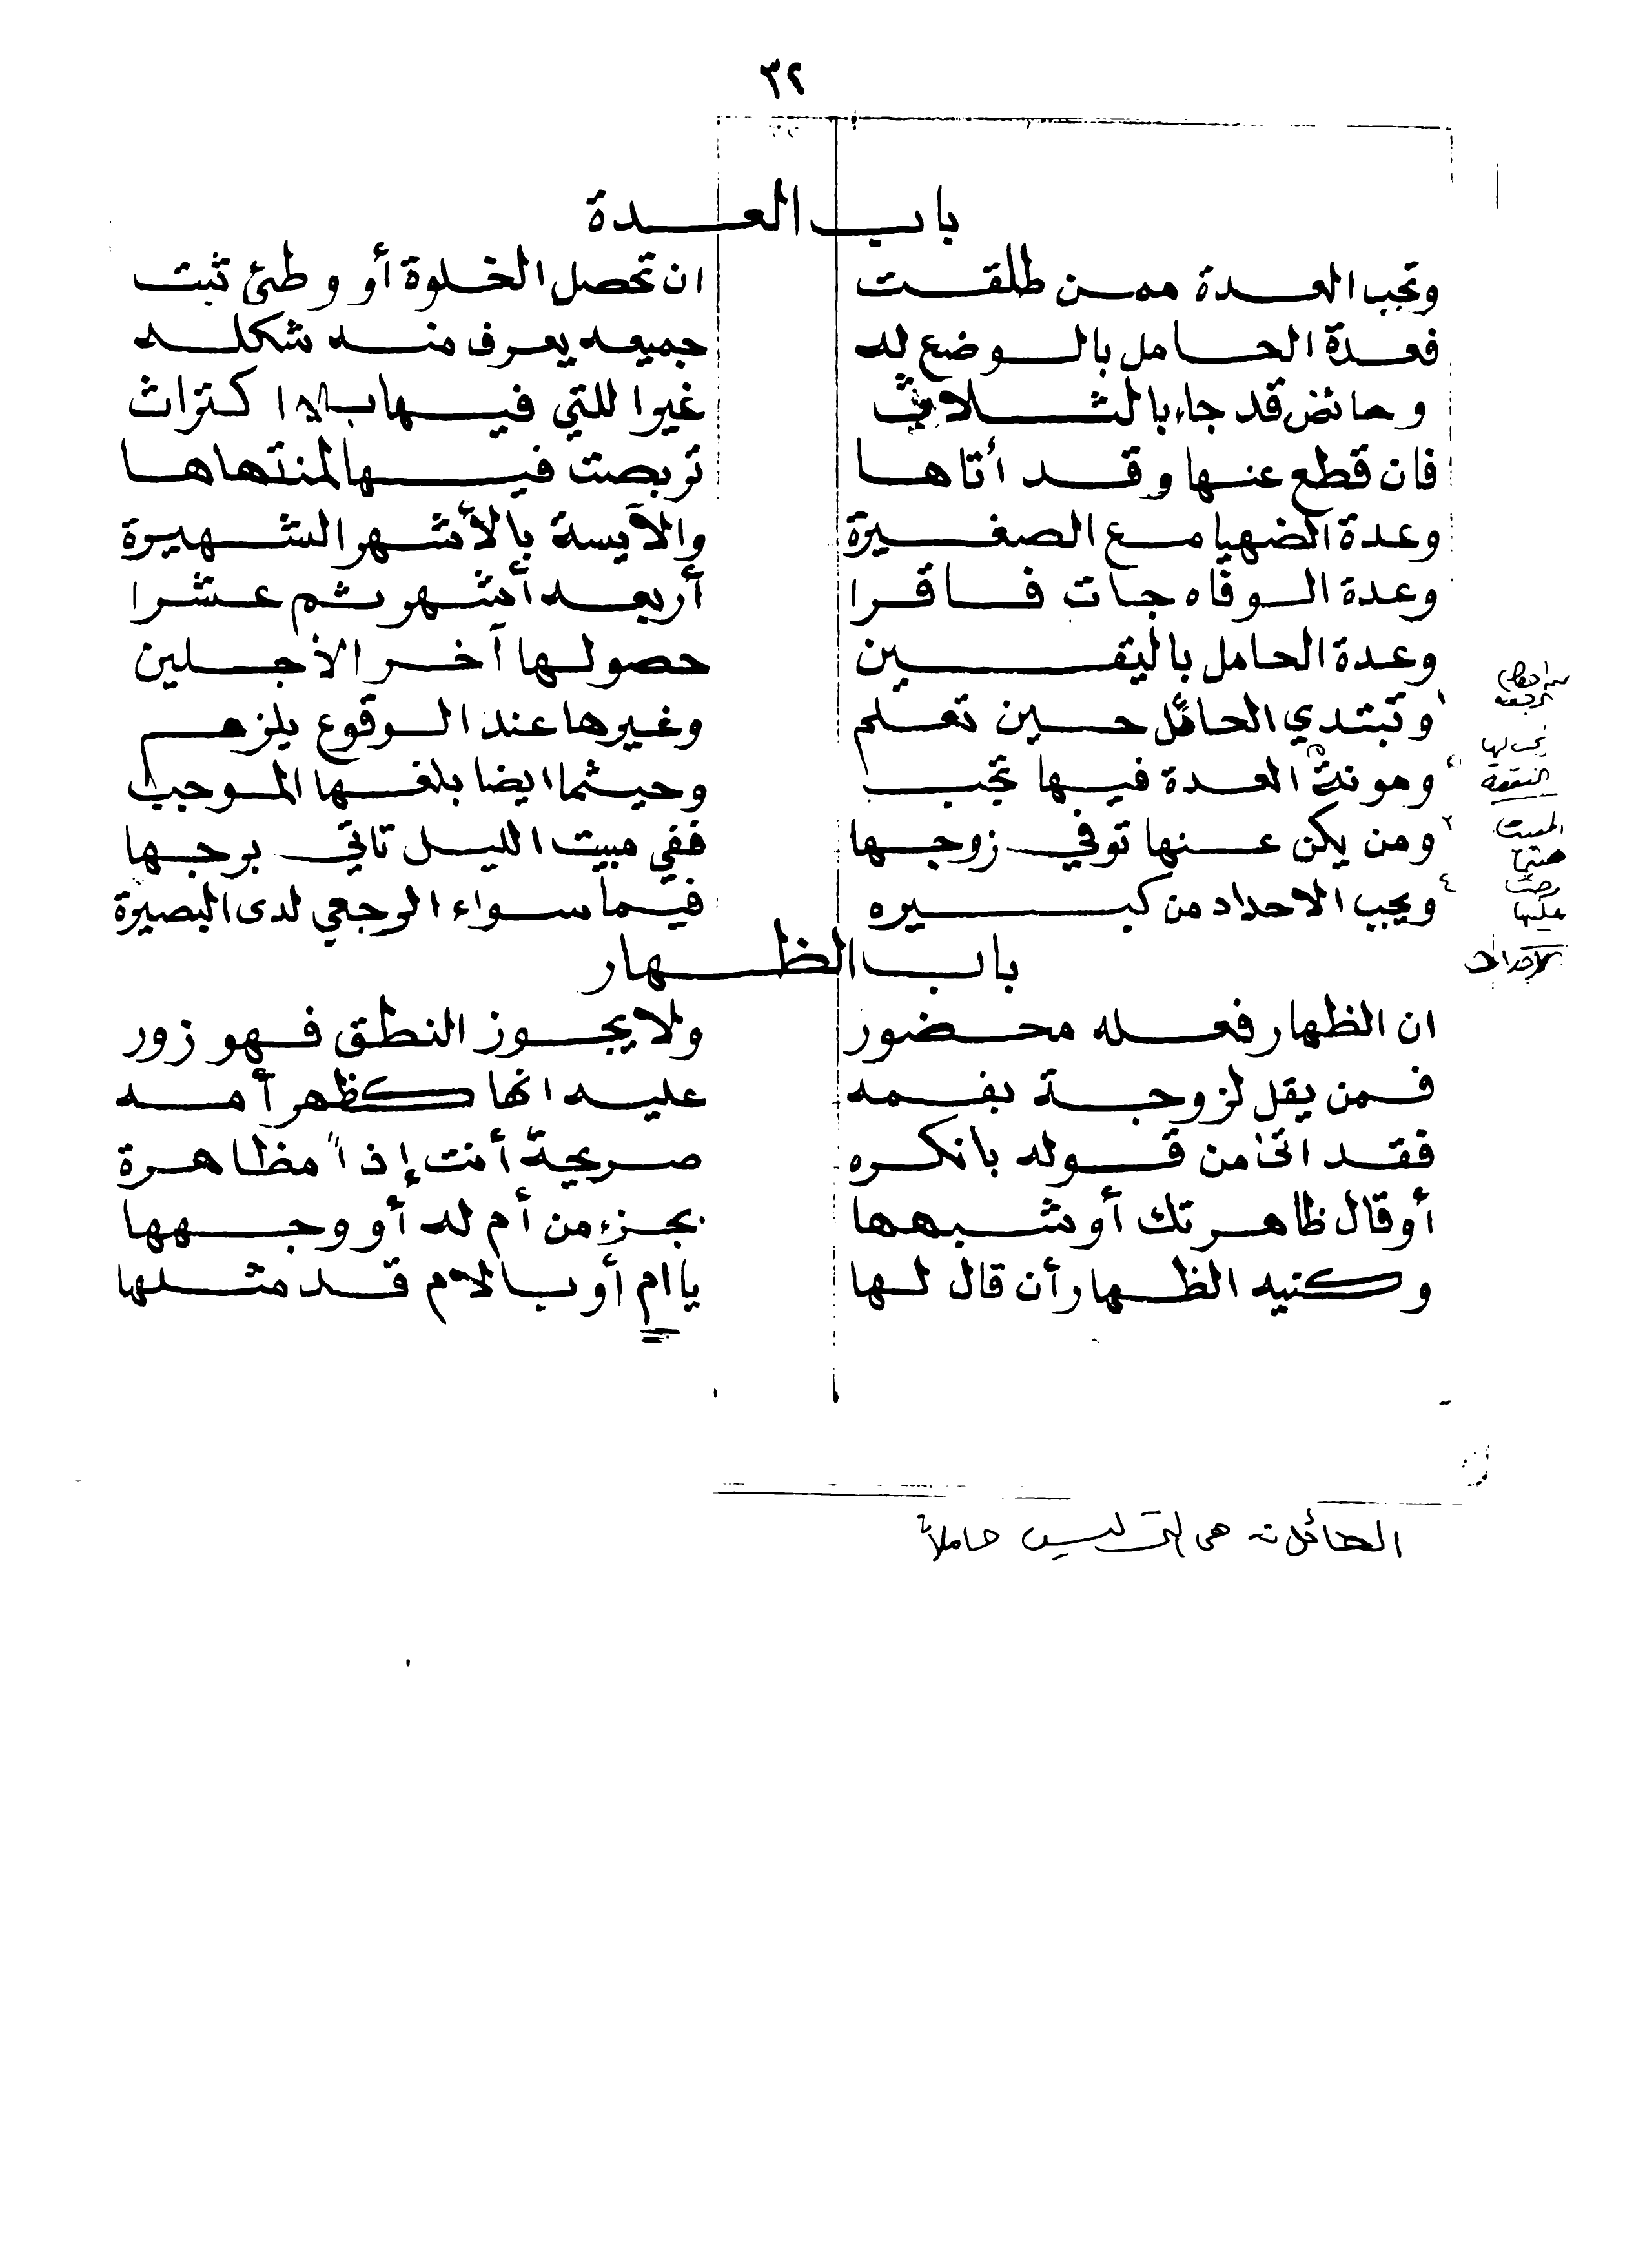 ٣٢
باب العدة
وتجب العدة ممن طلقت ان تحصل الخلوة أو وطئ ثبت
فعدة الحامل بالوضع له جميعه يعرف منه شكله
وحائض قد جاء بالثلاث غير اللتي فيها بلا اكتراث
فان قطع عنها وقد أتاها تربصت فيها لمنتهاها
وعدة الضهيا مع الصغيرة والآيسة بالأشهر الشهيرة
وعدة الوفاه جات فاقرا أربعه أشهر ثم عشرا
وعدة الحامل باليقين حصولها آخر الأجلين
١ وتبتدي الحائل حين تعلم وغيرها عند الوقوع يلزهم
ومونة العدة فيها تجب وحيثما ايضا بلغها الموجب
ومن يكن عنها توفي زوجها ففي مبيت الليل تاتي برجها
٤ ويجب الاحداد من كبيره فيما سواء الرجعي لدى البصيرة
تجب لها
النفقة
عليها
باب الظهار
ان الظهار فعله محضور ولا يجوز النطق فهو زور
فمن يقل لزوجة بفمه عليه انها كظهر أمه
فقد اتى من قوله بانكره صريحة أنت إذاً مظاهرة
أو قال ظاهرتك أو شبهها بجزء من أم له أو وجهها
وكنيه الظهار أن قال لها يا ام أو بالام قد مثلها
الحائل هي التي ليس حاملاً